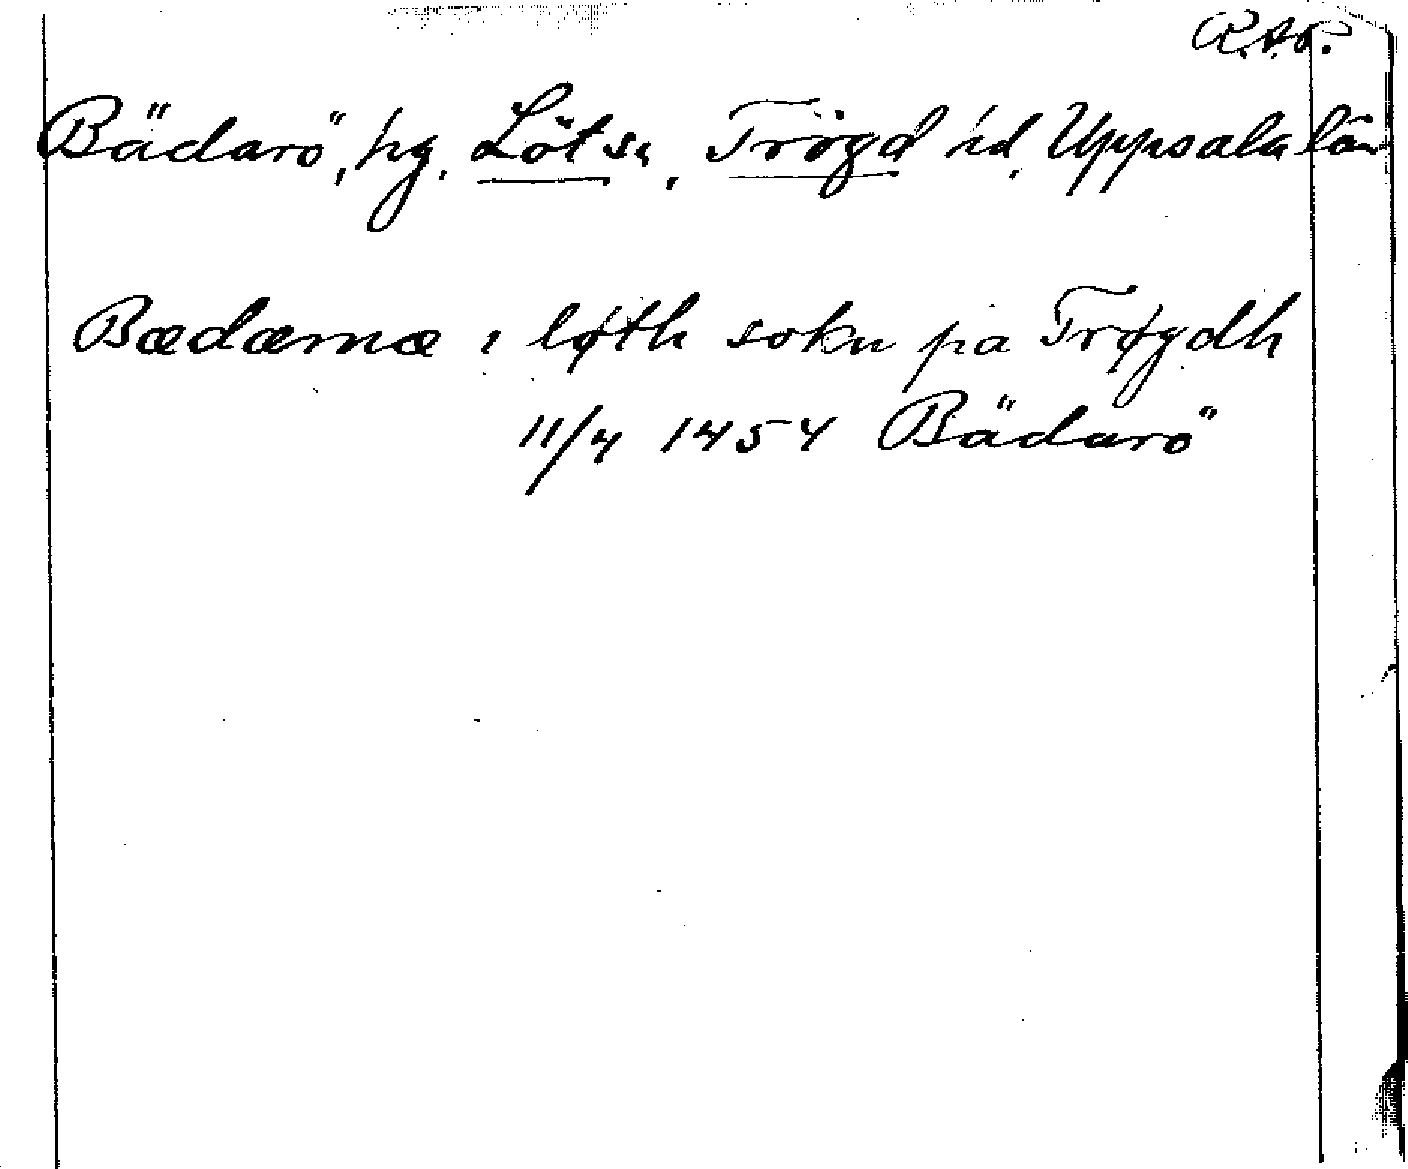 R.A.
Bädarö, hg. Löt sn, Trögd hd, Uppsala län
Bædærnæ i løth sokn pa Trøgdh
11/4 1454 Bädarö